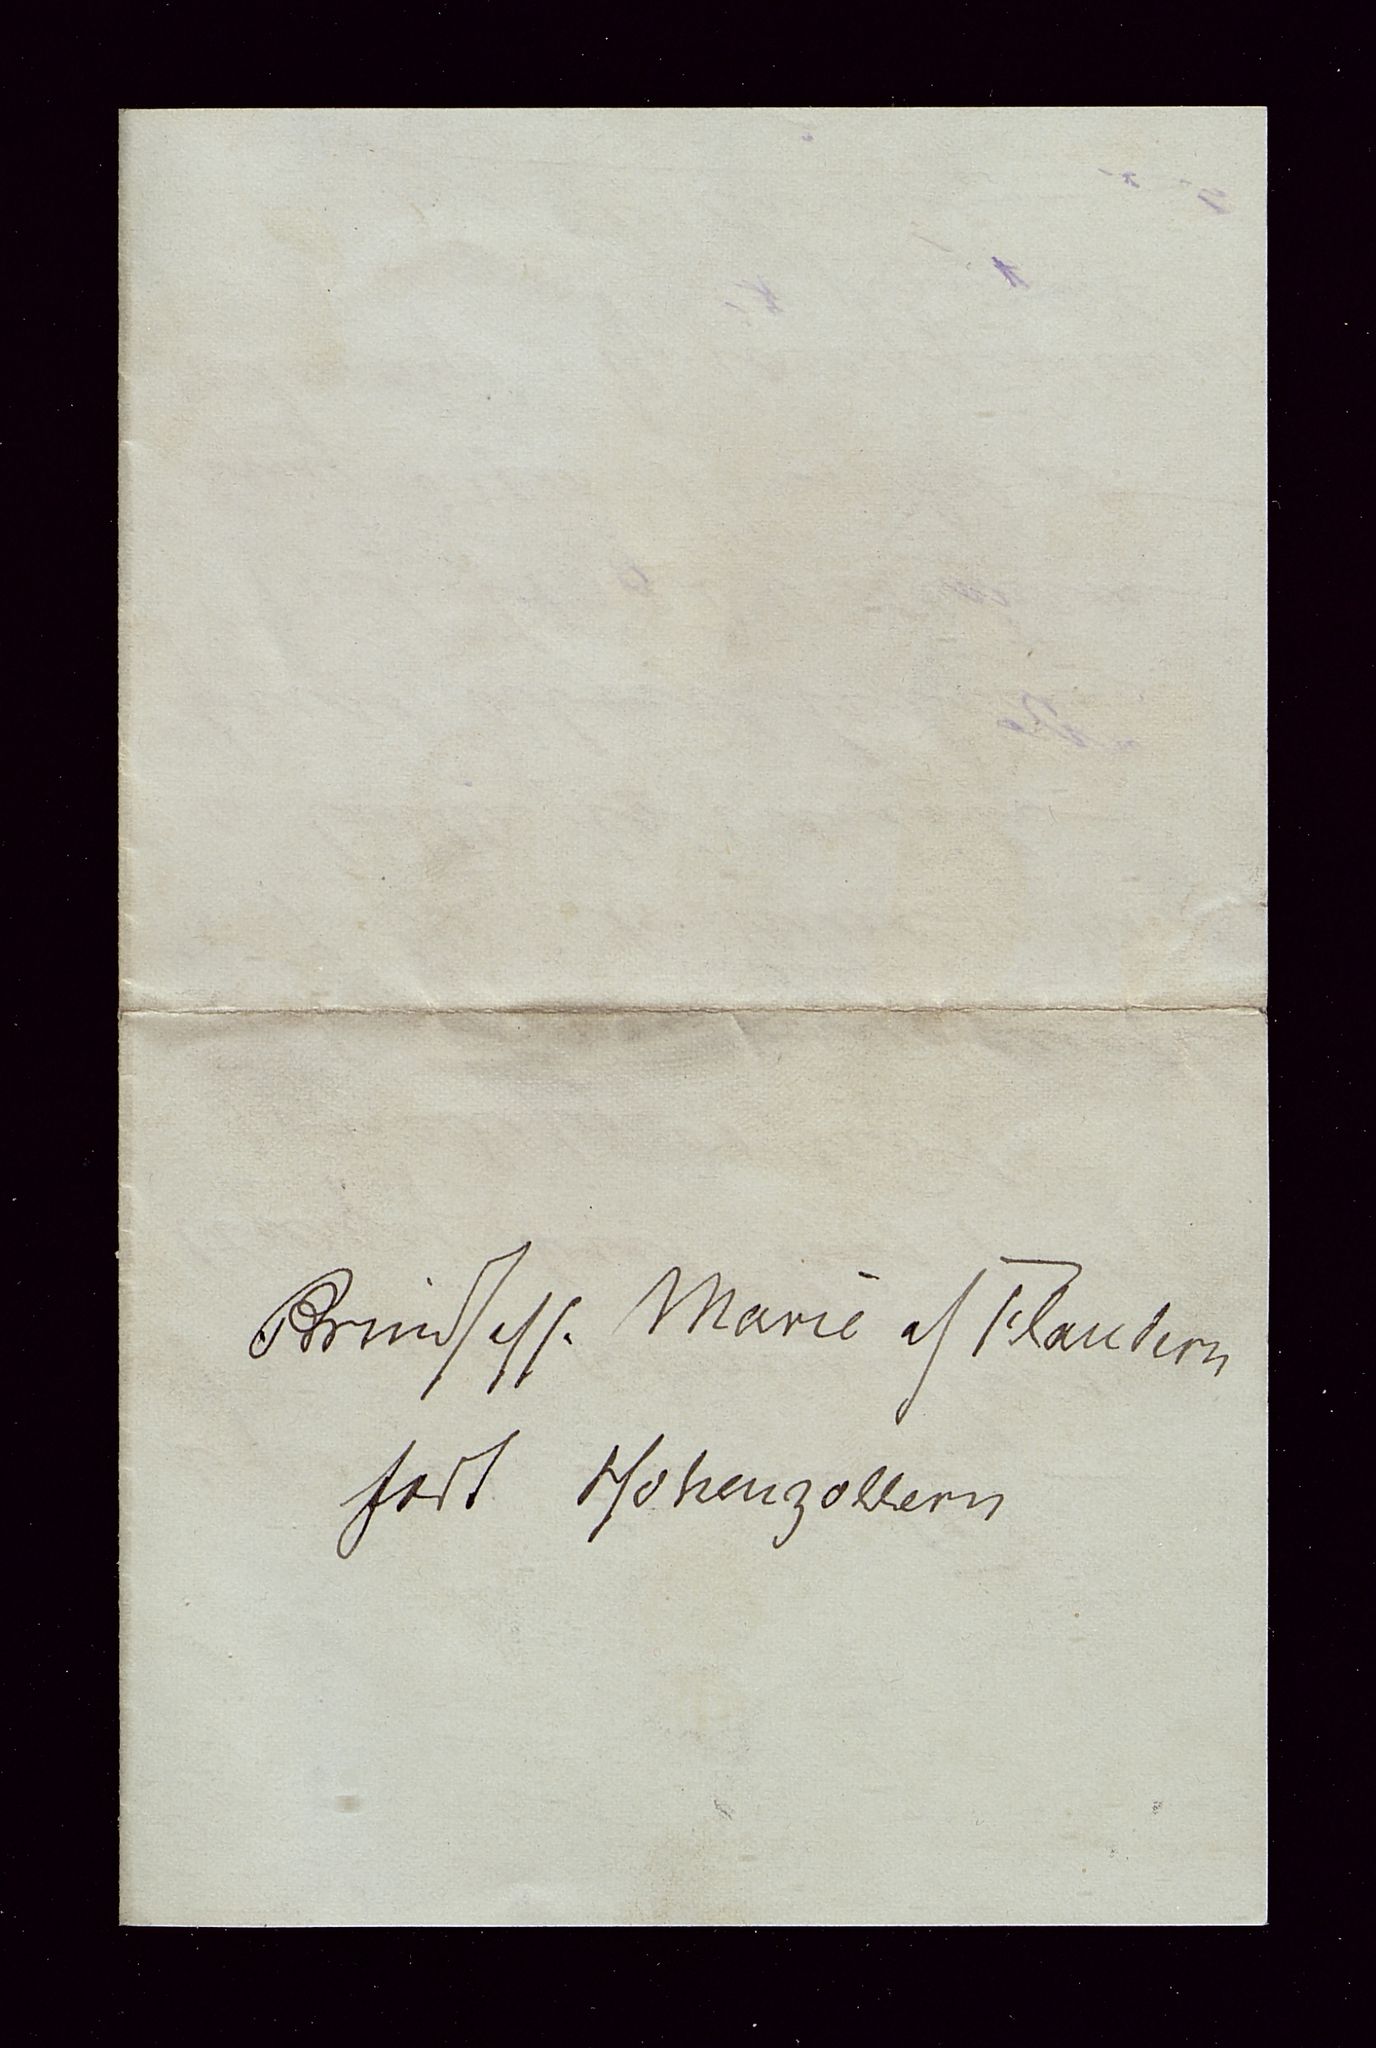 Prindsess. Marie af Flandern
født Hohenzollern